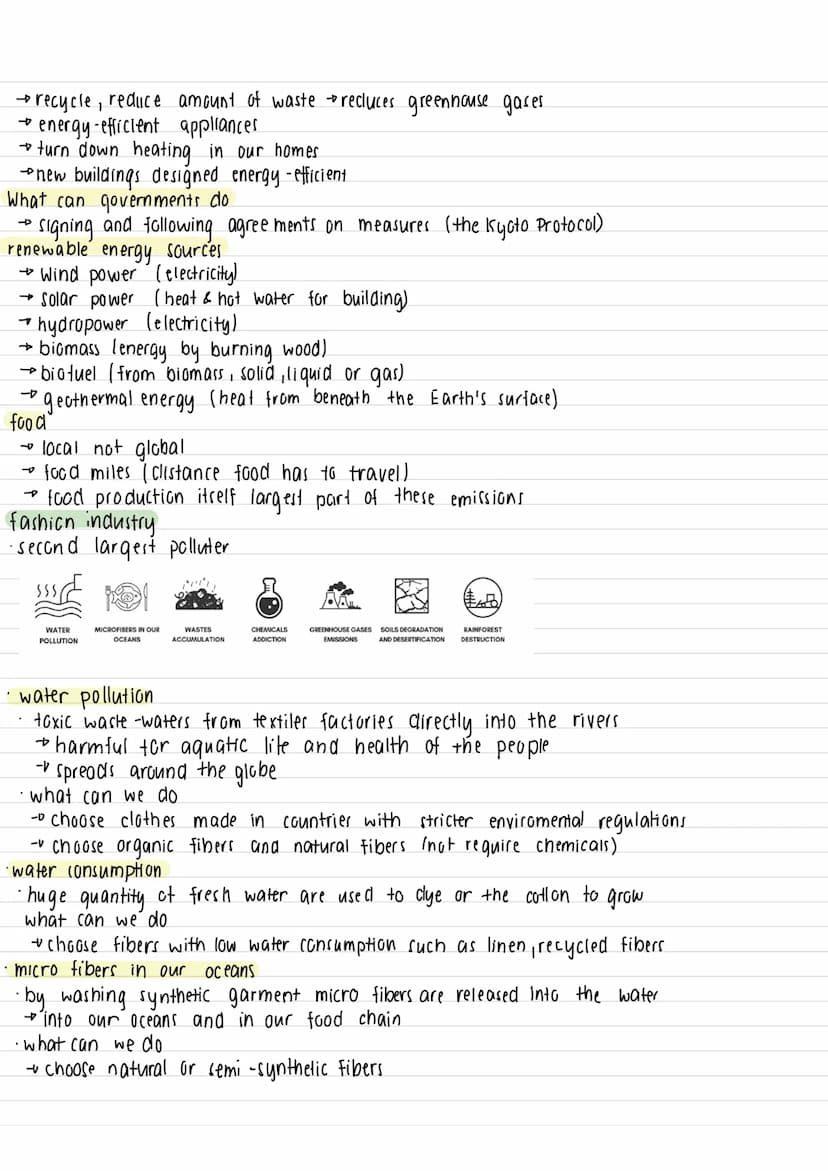 → recycle, reduce amount of waste → reduces greenhouse gases
→ energy-efficient appliances
→ turn down heating in our homes
→ new buildings designed energy-efficient
What can governments do
→ signing and following agreements on measures (the Kyoto Protocol)
renewable energy sources
→ wind power (electricity)
→ solar power (heat & hot water for building)
→ hydropower (electricity)
→ biomass (energy by burning wood)
→ biofuel (from biomass, solid, liquid or gas)
→ geothermal energy (heat from beneath the Earth's surface)
food
→ local not global
→ food miles (distance food has to travel)
→ food production itself largest part of these emissions
fashion industry
· second largest polluter
WATER POLLUTION
MICROFIBERS IN OUR OCEANS
WASTES ACCUMULATION
CHEMICALS ADDICTION
GREENHOUSE GASES EMISSIONS
SOILS DEGRADATION AND DESERTIFICATION
RAINFOREST DESTRUCTION
· water pollution
· toxic waste-waters from textiles factories directly into the rivers
→ harmful for aquatic life and health of the people
→ spreads around the globe
· what can we do
→ choose clothes made in countries with stricter enviromental regulations
→ choose organic fibers and natural fibers (not require chemicals)
· water consumption
· huge quantity of fresh water are used to dye or the cotton to grow
what can we do
→ choose fibers with low water consumption such as linen, recycled fibers
· micro fibers in our oceans
· by washing synthetic garment micro fibers are released into the water
→ into our oceans and in our food chain
· what can we do
→ choose natural or semi-synthetic fibers